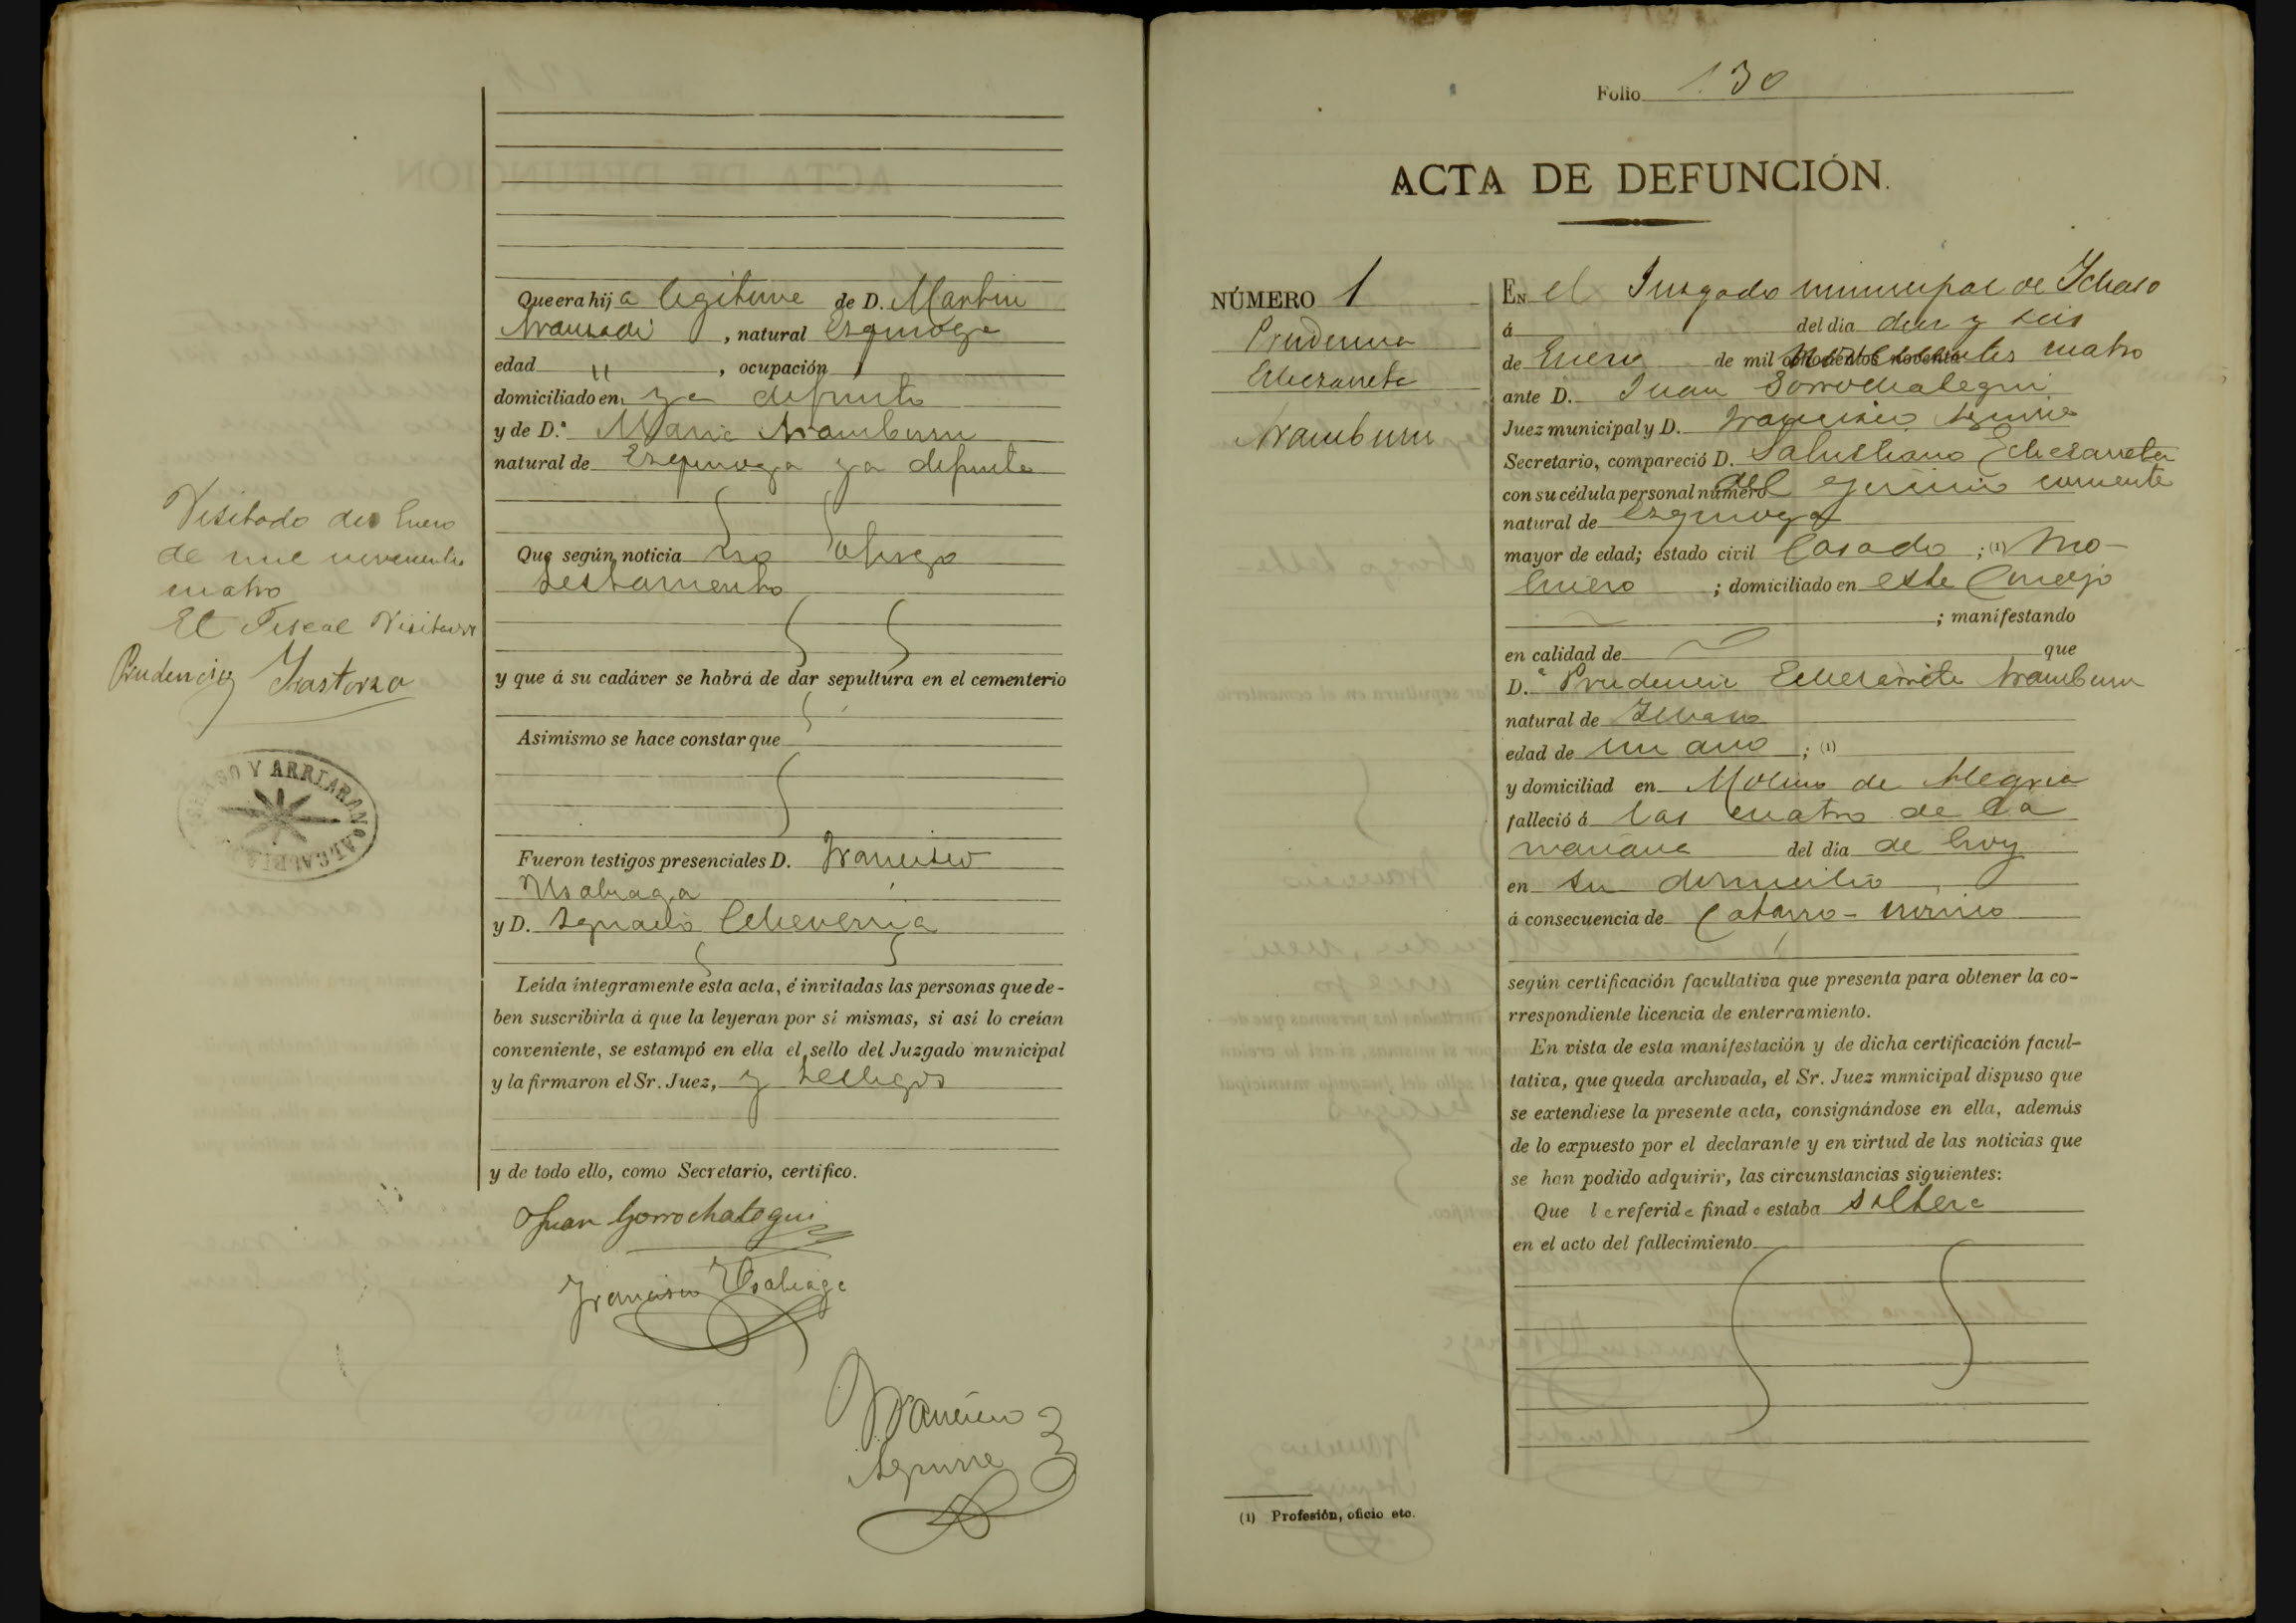 Que era hija legitima de D. Martin
Aranzadi, natural Ezquioga
edad " , ocupación
domiciliado en ya difunto
y de D.ª Maria Aramburu
natural de Ezquioga ya difunta
Que según noticia no otorgo
testamento
y que á su cadáver se habrá de dar sepultura en el cementerio
Asimismo se hace constar que
Fueron testigos presenciales D. Francisco
Usabiaga
y D. Ignacio Echeverria
Leída íntegramente esta acta, é invitadas las personas que de-
ben suscribirla á que la leyeran por sí mismas, si así lo creían
conveniente, se estampó en ella el sello del Juzgado municipal
y la firmaron el Sr. Juez, y testigos
y de todo ello, como Secretario, certifico.
Juan Gorrochategui
Francisco Usabiaga
Francisco
Aguirre
Visitado Enero
de mil novecientos
cuatro
El Fiscal Visitador
Prudencio
Y ARRIARAN ALCALDIA
Folio 130
ACTA DE DEFUNCIÓN.
NÚMERO 1
Prudencia
Echezarreta
Aramburu
EN el Juzgado municipal de Ichaso
á del dia diez y seis
de Enero de mil novecientos cuatro
ante D. Juan Gorrochategui
Juez municipal y D. Francisco Aguirre
Secretario, compareció D. Salustiano Echezarreta
con su cédula personal número del ejercicio corriente
natural de Ezquioga
mayor de edad; estado civil Casado ; (1) Mo-
linero ; domiciliado en este Concejo
; manifestando
en calidad de que
D.ª Prudencia Echezarreta Aramburu
natural de Ichaso
edad de un año ; (1)
y domiciliad en Molino de Alegria
falleció á las cuatro de la
mañana del dia de hoy
en su domicilio
á consecuencia de Catarro-
según certificación facultativa que presenta para obtener la co-
rrespondiente licencia de enterramiento.
En vista de esta manifestación y de dicha certificación facul-
tativa, que queda archivada, el Sr. Juez mnnicipal dispuso que
se extendiese la presente acta, consignándose en ella, además
de lo expuesto por el declarante y en virtud de las noticias que
se han podido adquirir, las circunstancias siguientes:
Que la referida finada estaba soltera
en el acto del fallecimiento
(1) Profesión, oficio etc.